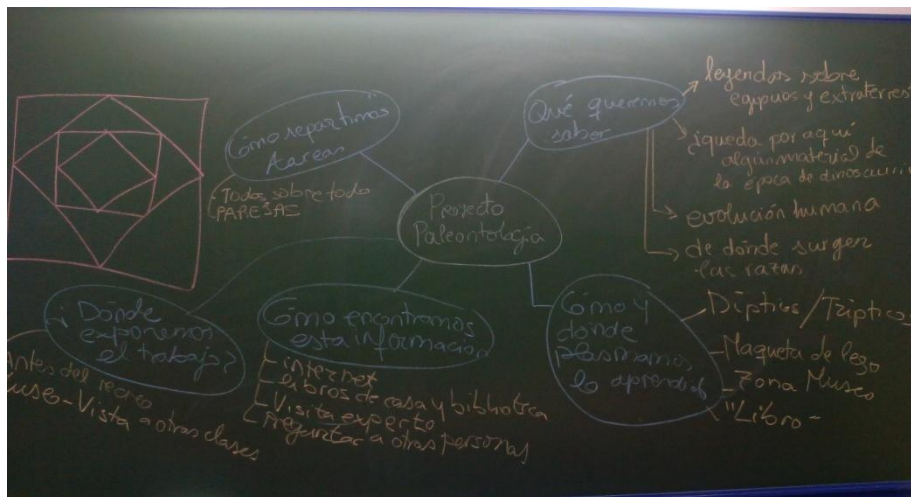 Cómo repartimos
tareas
- Todos sobre todo
PAREJAS
Proyecto
Paleontología
Qué queremos
saber
leyendas sobre
egipcios y extraterres
¿queda por aquí
algún material de
la época de dinosaurios
evolución humana
de dónde surgen
las razas
¿Dónde
exponemos
el trabajo?
Antes del recreo
useo - Visita a otras clases
Cómo encontramos
esta información
internet
libros de casa y biblioteca
Visita experto
Preguntar a otras personas
Cómo y
dónde
plasmamos
lo aprendido
Dípticos / Trípticos
Maqueta de lego
Zona Museo
"Libro"